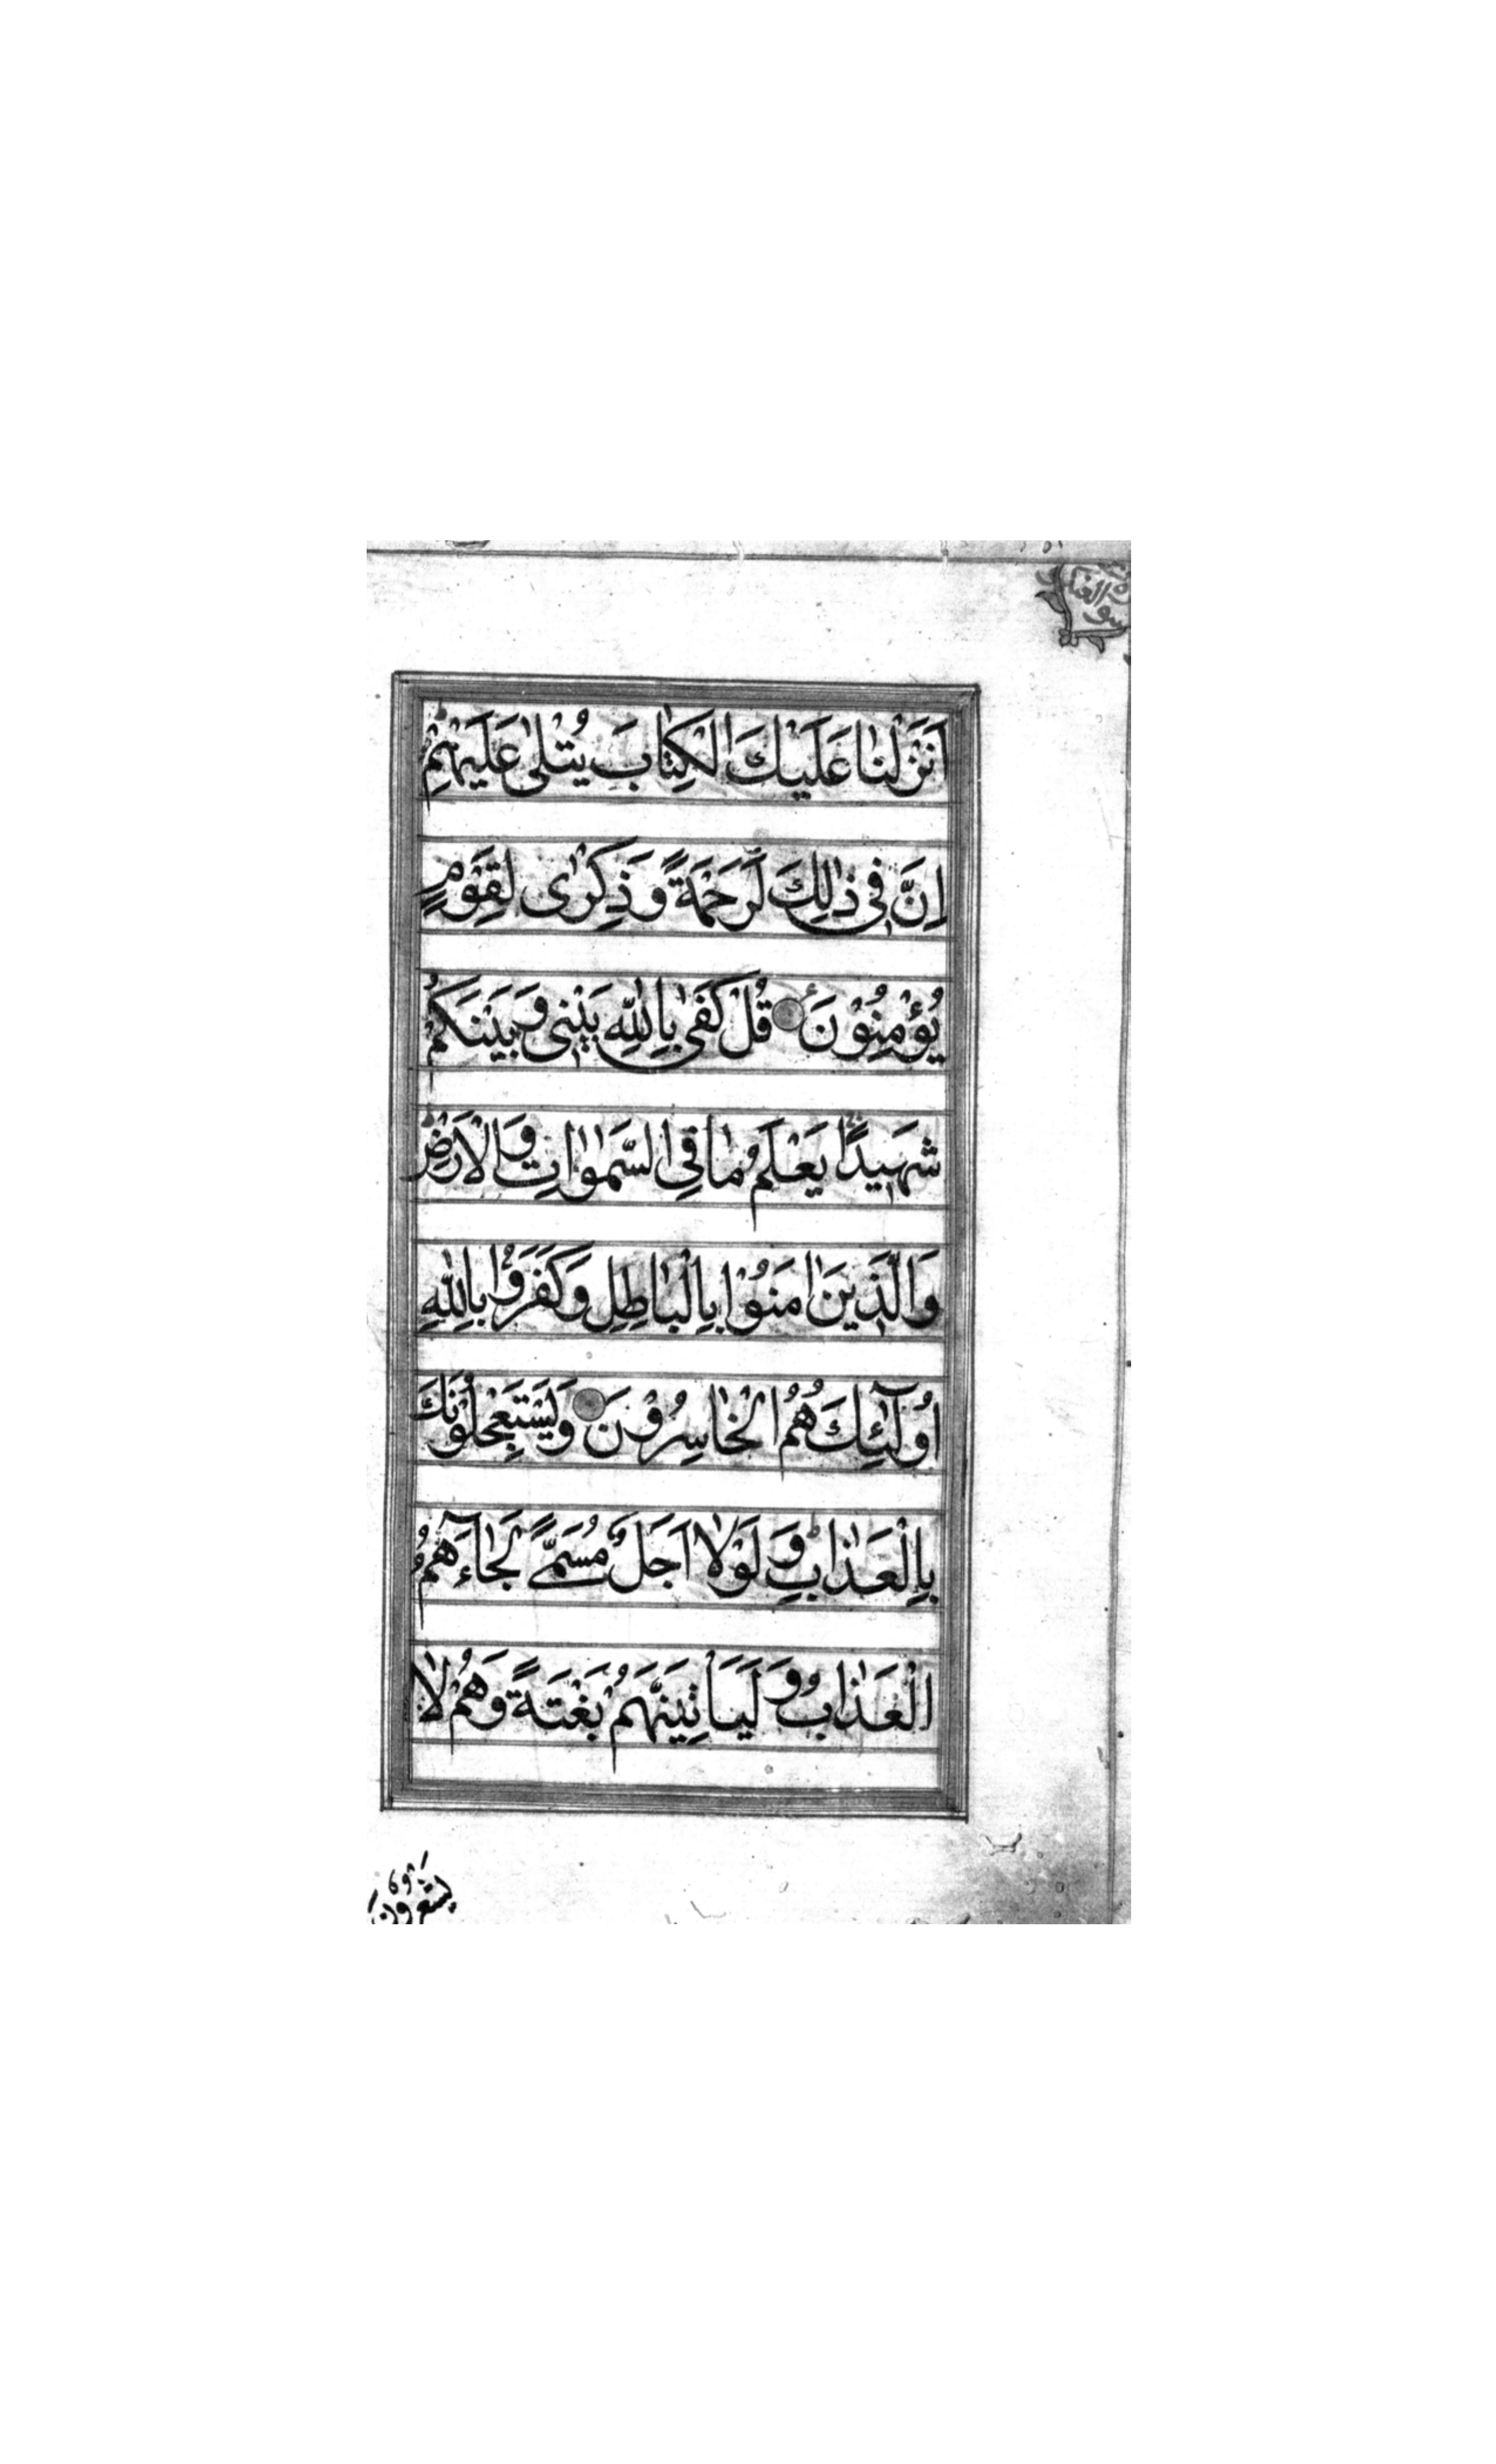 اَنْزَلْنٰا عَلَيْكَ الْكِتٰابَ يُتْلىٰ عَلَيْهِمْ
اِنَّ فِي ذٰلِكَ لَرَحْمَةً وَذِكْرٰى لِقَوْمٍ
يُؤْمِنُوْنَ قُلْ كَفىٰ بِاللّٰهِ بَيْنِي وَبَيْنَكُمْ
شَهِيدًا يَعْلَمُ مٰا فِي السَّمٰوٰاتِ وَالْاَرْضِ
وَالَّذِينَ اٰمَنُوْا بِالْبٰاطِلِ وَكَفَرَوْا بِاللّٰهِ
اُولٰٓئِكَ هُمُ الْخٰاسِرُوْنَ وَيَسْتَعْجِلُوْنَكَ
بِالْعَذٰابِ وَلَوْلٰا اَجَلٌ مُسَمًّى لَجٰٓاءَهُمُ
الْعَذٰابُ وَلَيَأْتِيَنَّهُمْ بَغْتَةً وَهُمْ لٰا
يشعرون